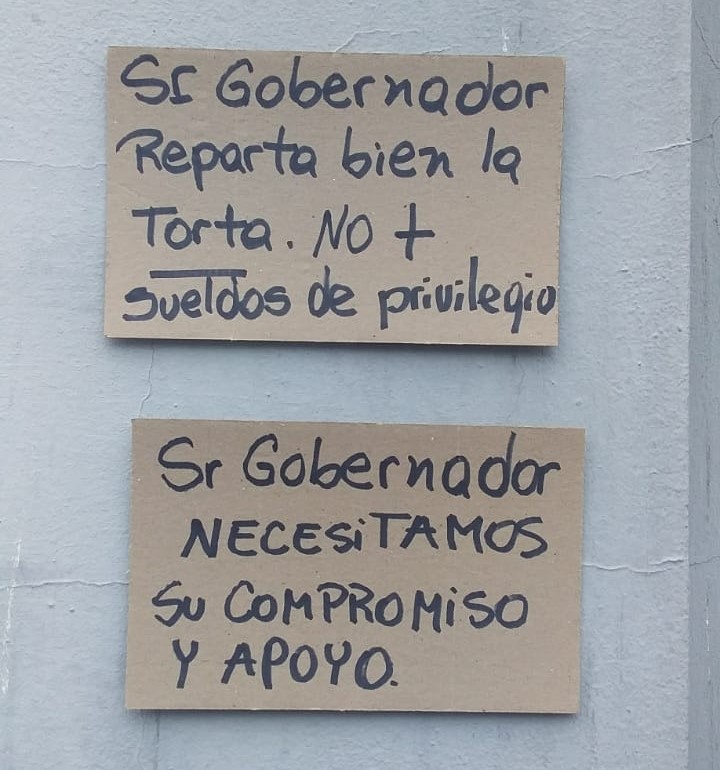 Sr Gobernador
Reparta bien la
Torta. NO +
sueldos de privilegio
Sr Gobernador
NECESiTAMOS
SU COMPROMiSO
Y APOYO.